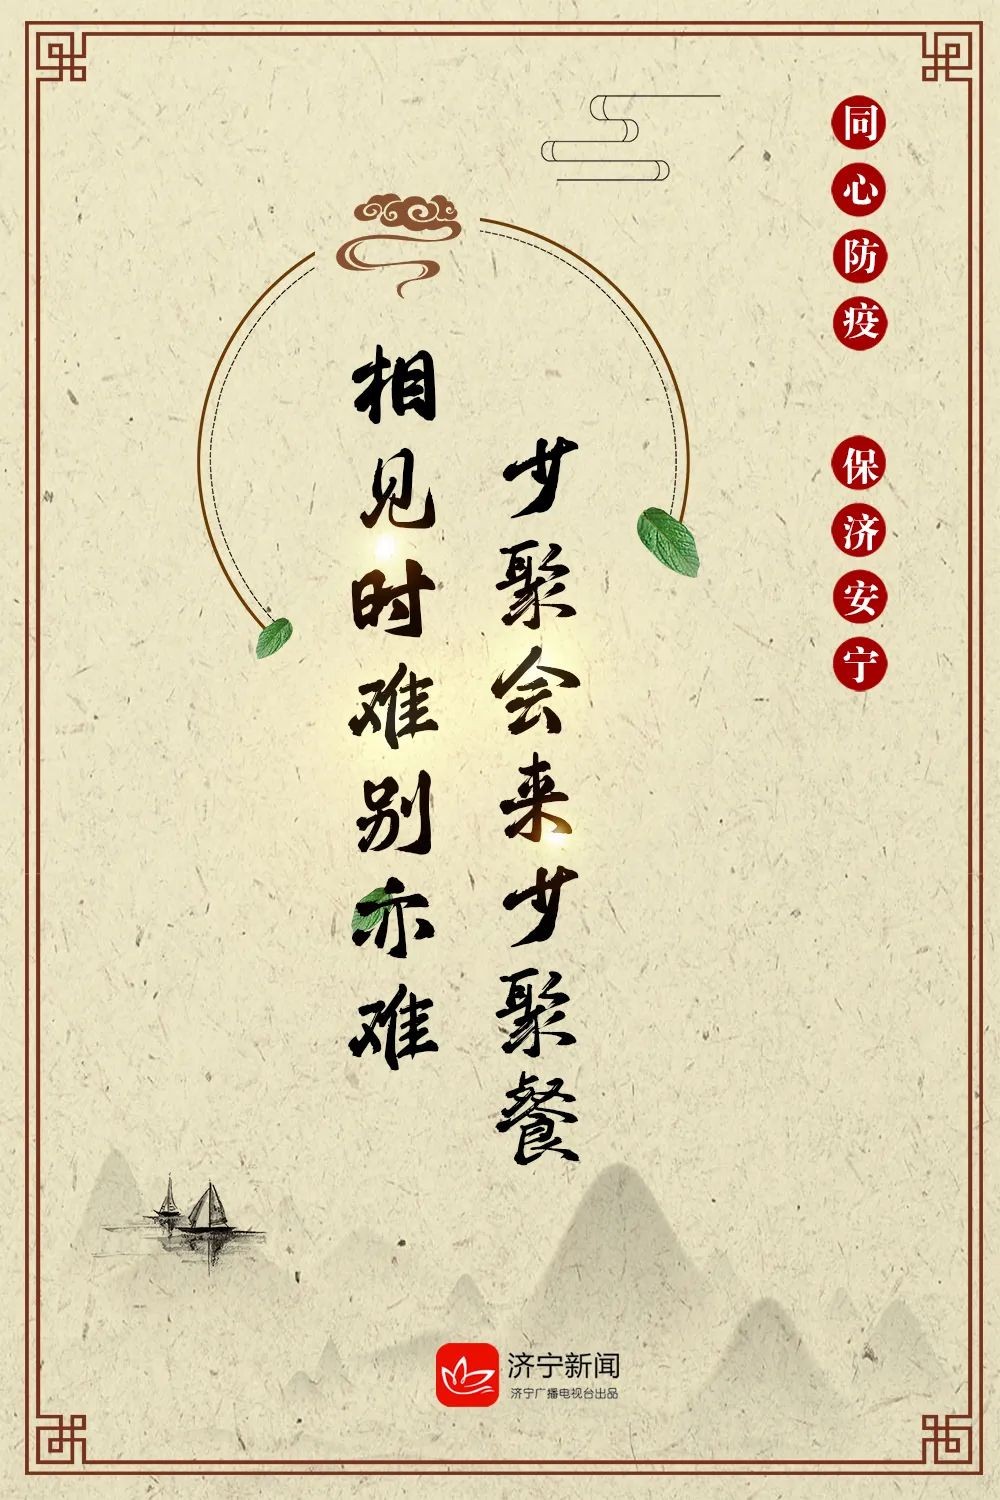 同心防疫 保济安宁
少聚会来少聚餐
相见时难别亦难
济宁新闻
济宁广播电视台出品